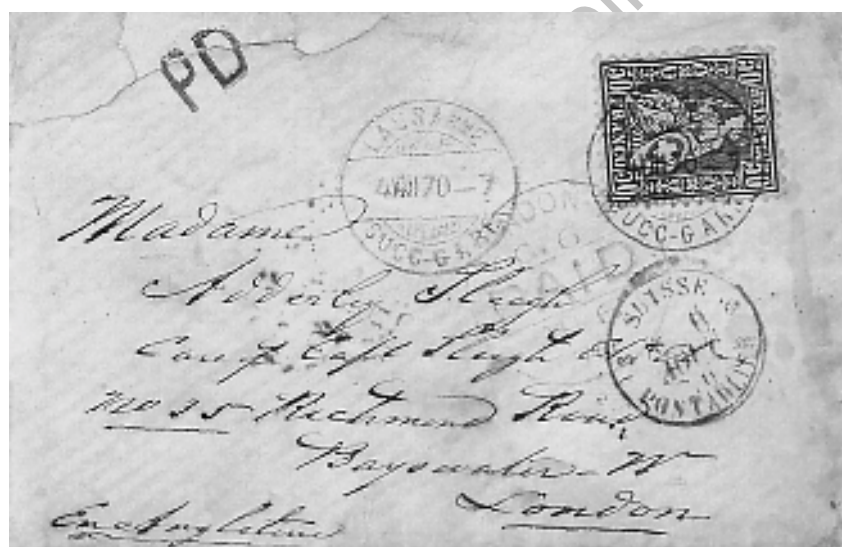 PD
LAUSANNE
4 VIII 70-7
SUCC-GARE
50 50
50 50
SUCC-GARE
PAID
SUISSE
6
AOUT
PONTARLIER
Madame
Adderly Sleigh
Care of Capt Sleigh
No 35 Richmond Road
Bayswater W
London
En Angleterre